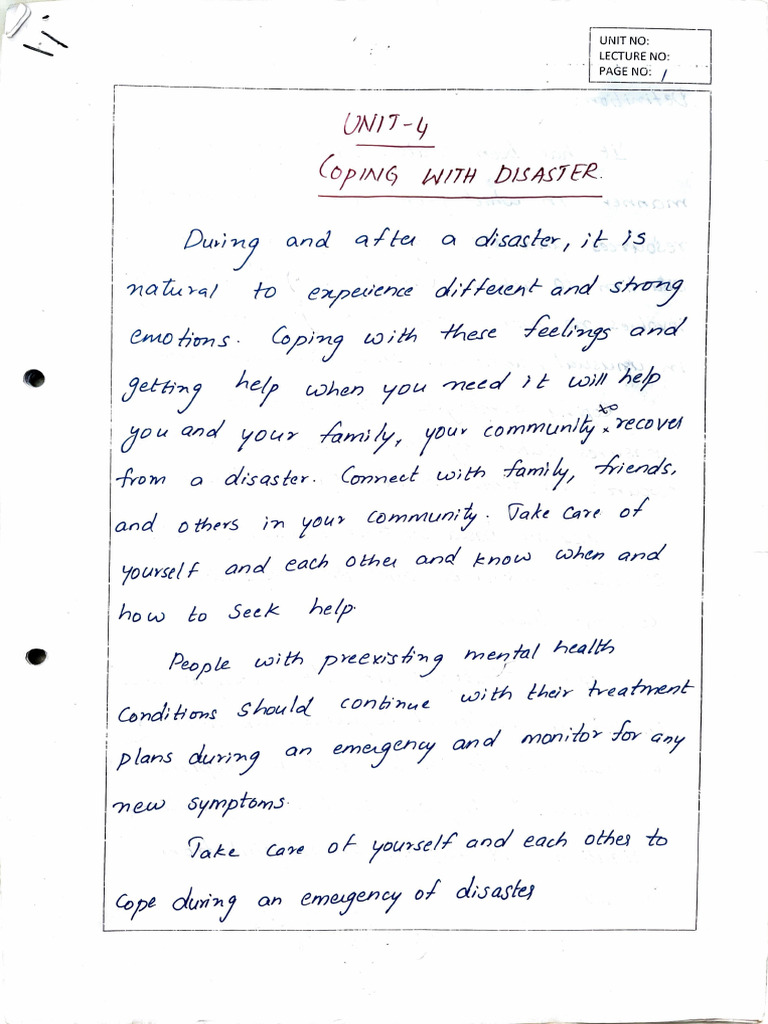 UNIT NO:
LECTURE NO:
PAGE NO: 1
UNIT-4
COPING WITH DISASTER.
During and after a disaster, it is
natural to experience different and strong
emotions. Coping with these feelings and
getting help when you need it will help
you and your family, your community to recover
from a disaster. Connect with family, friends,
and others in your community. Take care of
yourself and each other and know when and
how to seek help.
People with preexisting mental health
Conditions should continue with their treatment
plans during an emergency and monitor for any
new symptoms.
Take care of yourself and each other to
cope during an emergency of disaster